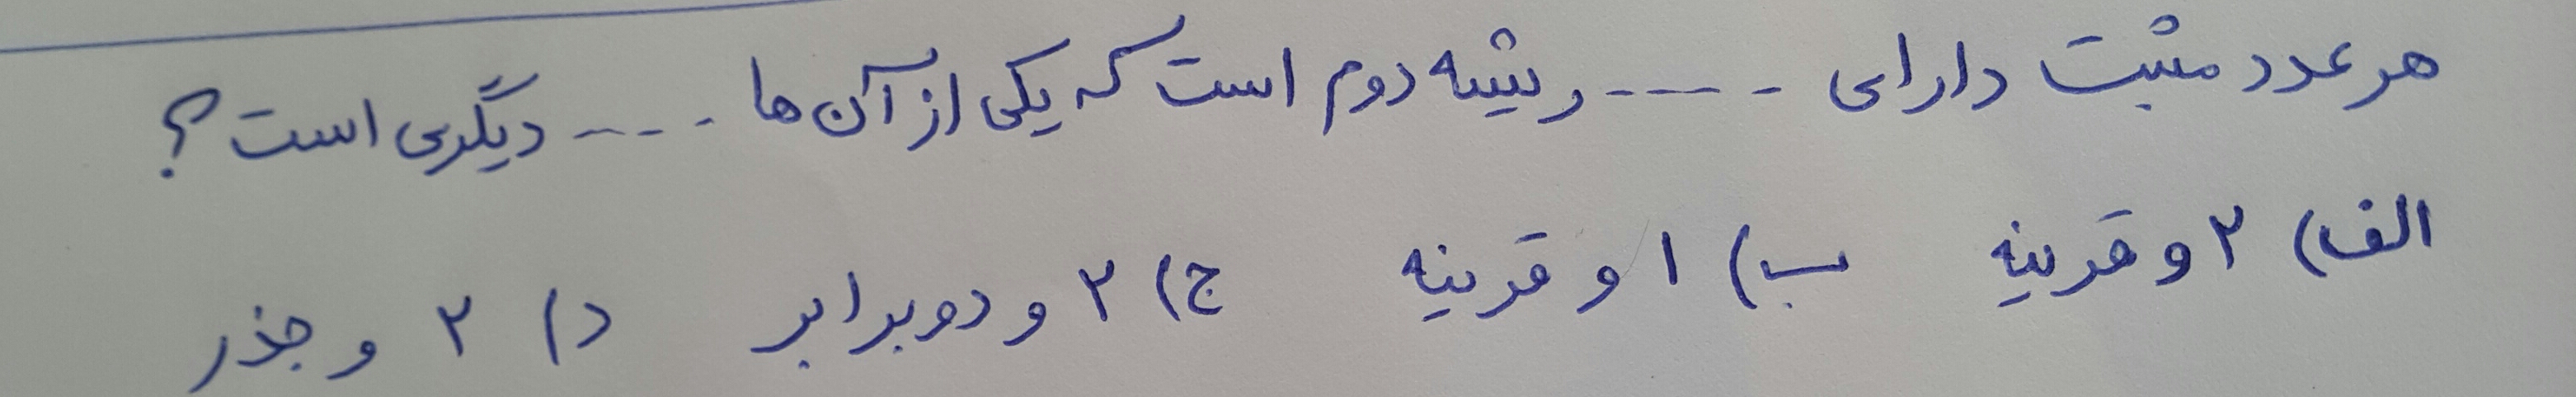 هر عدد مثبت دارای ----- ریشه دوم است که یکی از آن ها ----- دیگری است؟
الف) ۲ و قرینه ب) ۱ و قرینه ج) ۲ و دو برابر د) ۲ و جذر